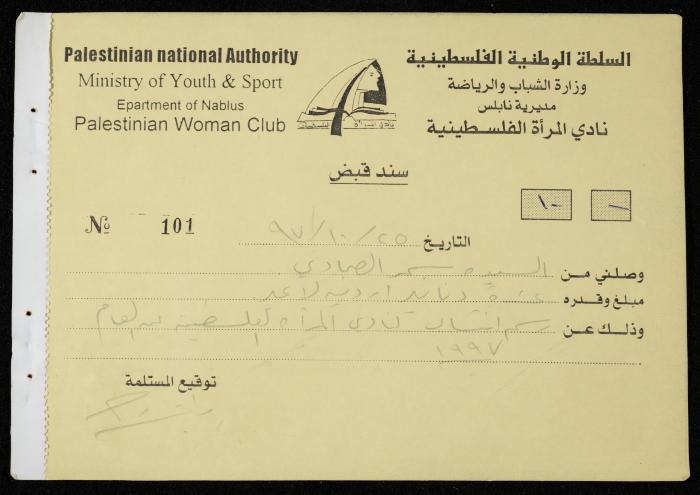 Palestinian national Authority
Ministry of Youth & Sport
Epartment of Nablus
Palestinian Woman Club
السلطة الوطنية الفلسطينية
وزارة الشباب والرياضة
مديرية نابلس
نادي المرأة الفلسطينية
نادي المرأة الفلسطينية
سند قبض
١٠- —
№ 101
التاريخ ٩٧/١٠/٢٥
وصلني من السيدة سحر
مبلغ وقدره عشرة دنانير اردنية لا غير
وذلك عن رسم انتساب لنادي المرأة الفلسطينية عن العام
١٩٩٧
توقيع المستلمة